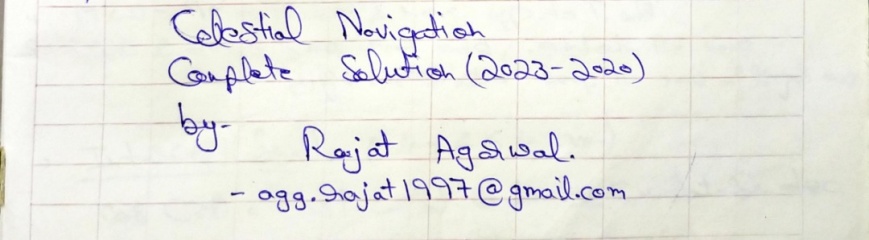 Celestial Navigation
Complete Solution (2023-2020)
by-
Rajat Agarwal.
- agg.rajat1997@gmail.com